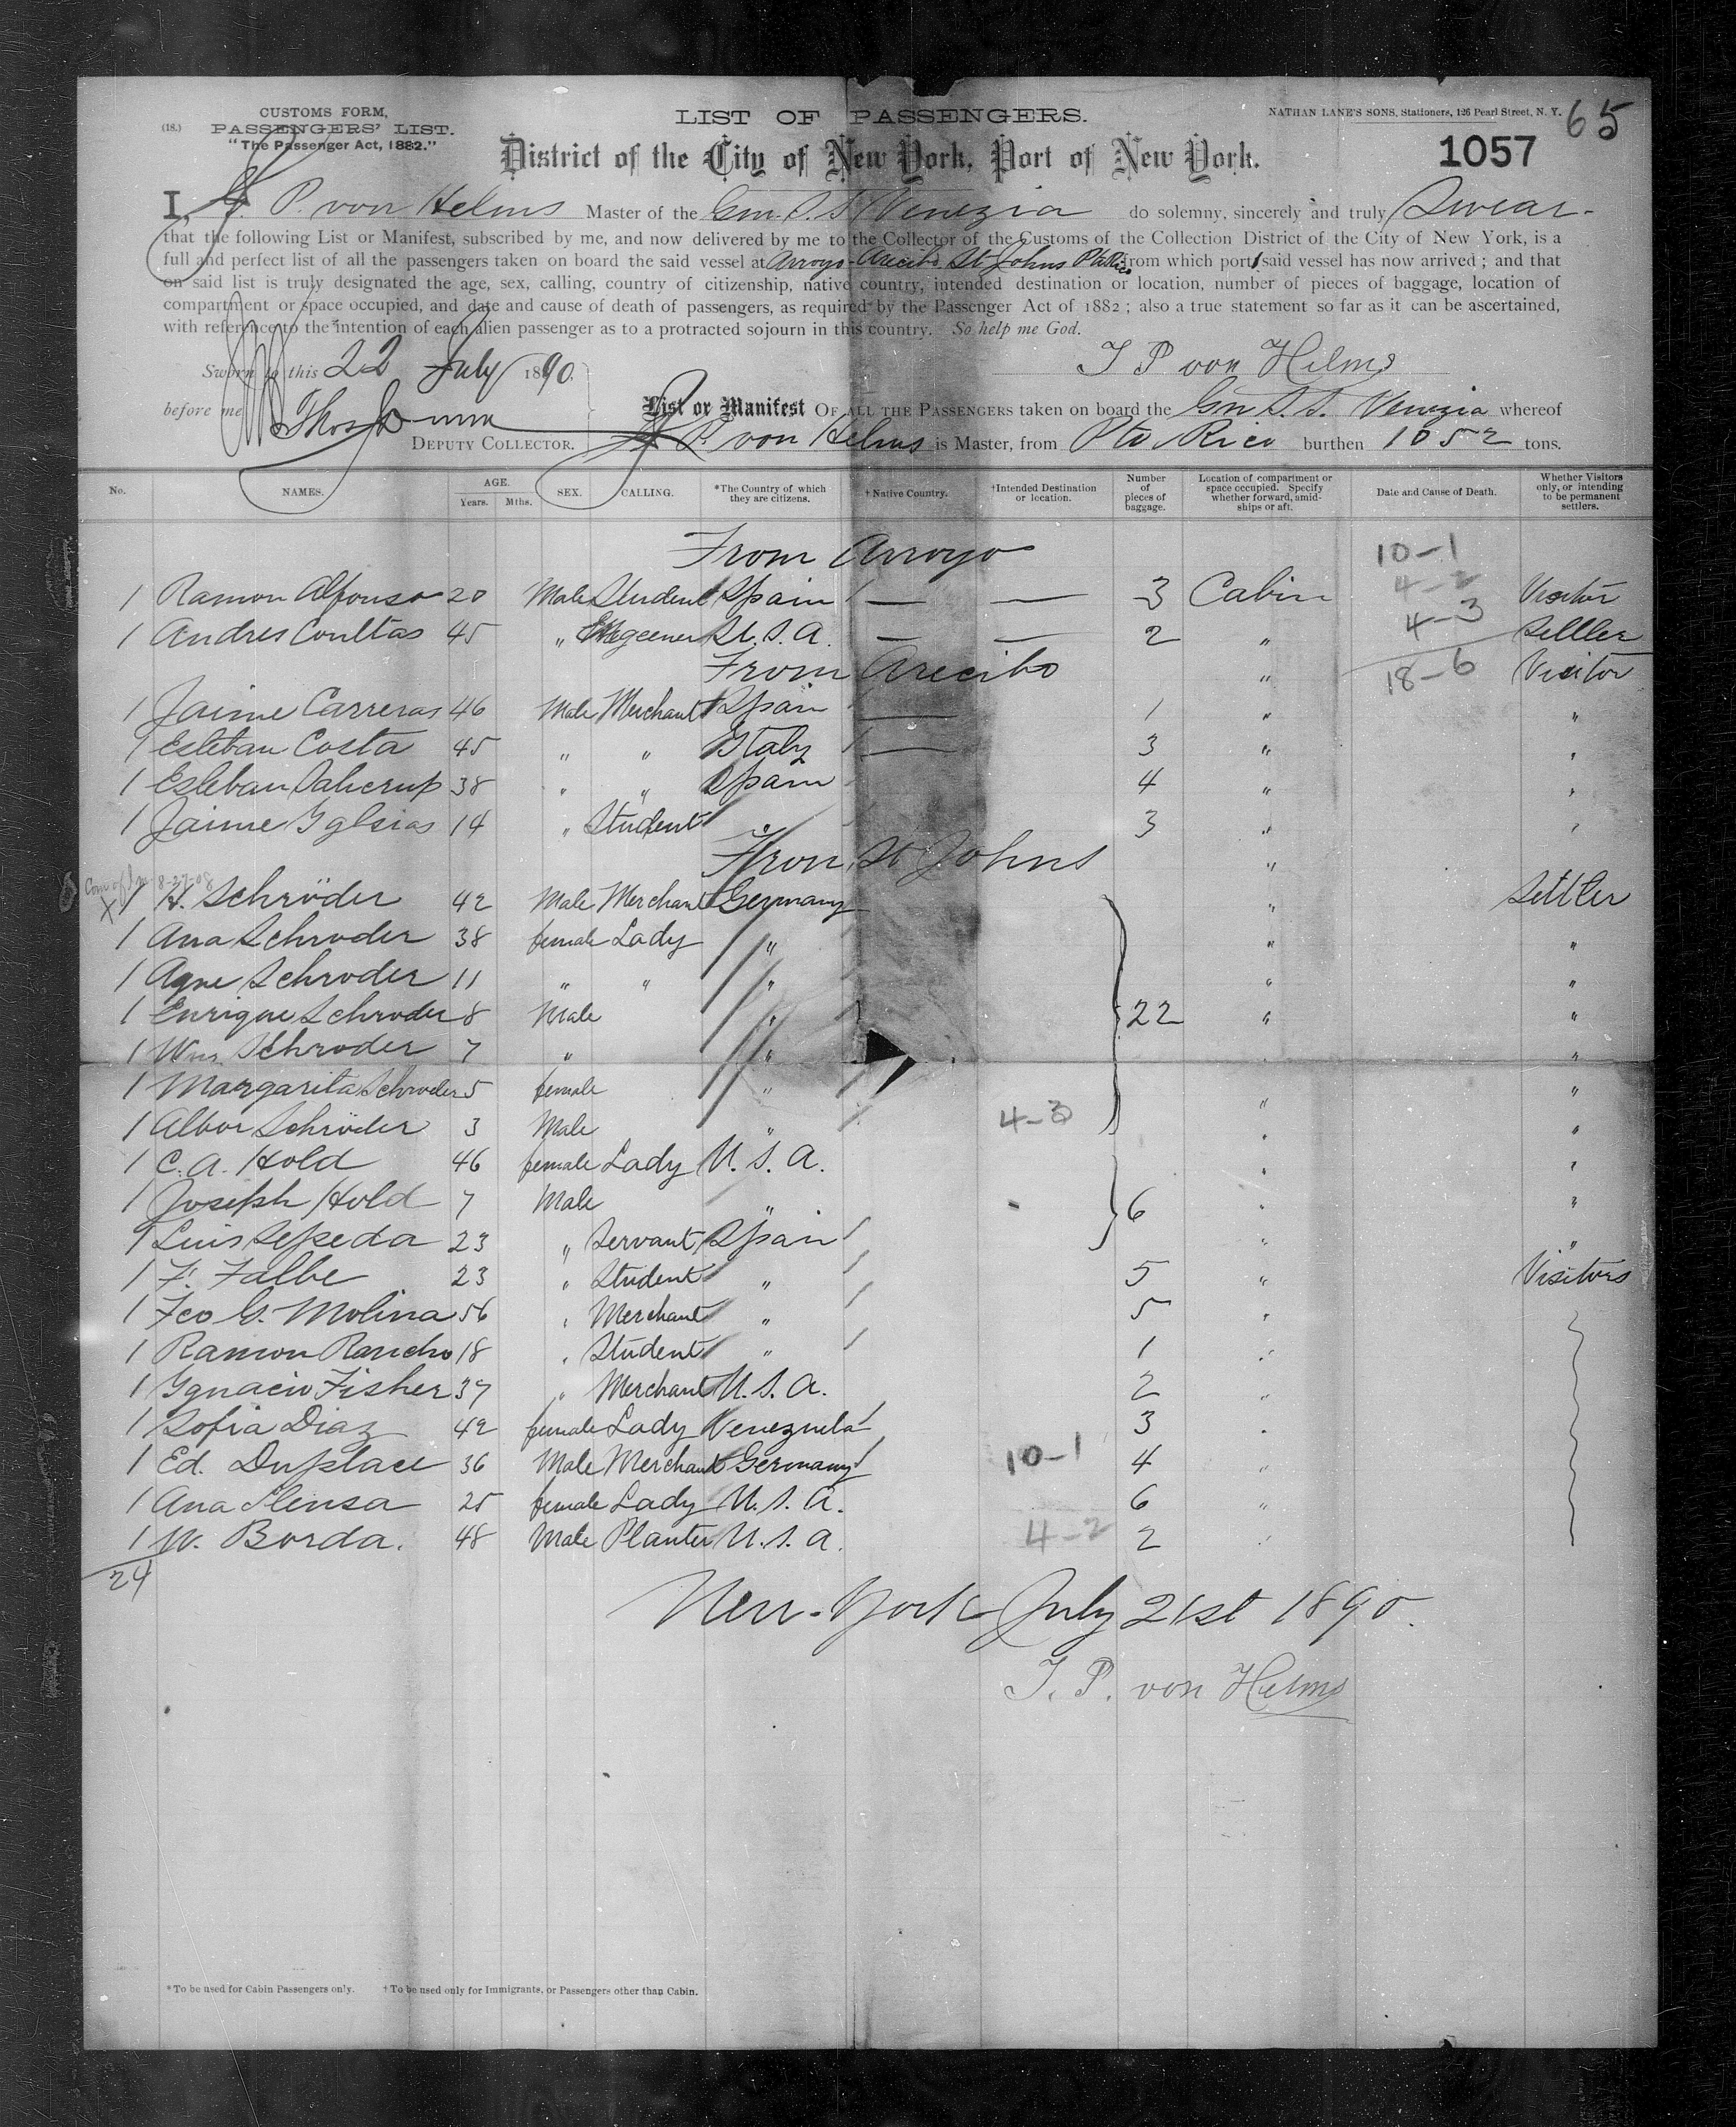 (18.)
CUSTOMS FORM,
PASSENGERS' LIST.
"The Passenger Act, 1882."
LIST OF PASSENGERS.
District of the City of New York, Port of New York.
NATHAN LANE'S SONS, Stationers, 126 Pearl Street, N. Y.
65
1057
I, P. von Helms Master of the Gm. S. S. Venezia do solemny, sincerely and truly Swear-
that the following List or Manifest, subscribed by me, and now delivered by me to the Collector of the Customs of the Collection District of the City of New York, is a
full and perfect list of all the passengers taken on board the said vessel at Arroyo-Arecibo St Johns from which port said vessel has now arrived ; and that
on said list is truly designated the age, sex, calling, country of citizenship, native country, intended destination or location, number of pieces of baggage, location of
compartment or space occupied, and date and cause of death of passengers, as required by the Passenger Act of 1882 ; also a true statement so far as it can be ascertained,
with reference to the intention of each alien passenger as to a protracted sojourn in this country. So help me God.
J P von Helms
Sworn to this 22 July 1890.
before me Thos
DEPUTY COLLECTOR.
List or Manifest OF ALL THE PASSENGERS taken on board the Gm S. S. Venezia whereof
P. von Helms is Master, from Pto Rico burthen 1052 tons.
No. NAMES. AGE. Years. Mths. SEX. CALLING. *The Country of which they are citizens. † Native Country. †Intended Destination or location. Number of pieces of baggage. Location of compartment or space occupied. Specify whether forward, amidships or aft. Date and Cause of Death. Whether Visitors only, or intending to be permanent settlers.
From Arroyo 10-1
1 Ramon Alfonso 20 Male Student Spain — — 3 Cabin 4-2 Visitor
1 Andres Coultas 45 " Engeener U.S.A. — — 2 " 4-3 Settler
From Arecibo " 18-6 Visitor
1 Jaime Carreras 46 Male Merchant Spain — 1 " "
1 Esteban Costa 45 " " Italy — 3 " "
1 Esteban 38 " " Spain 4 " "
1 Jaime Yglsias 14 " Student 3 " "
From St Johns "
8-27-08
X 1 H. Schröder 42 Male Merchant Germany " Settler
1 Ana Schroder 38 female Lady " " "
1 Agne Schroder 11 " " " " "
1 Enrique Schroder 8 Male " 22 " "
1 Wm Schroder 7 " " " "
1 Margarita Schroder 5 female " " "
1 Albor Schröder 3 Male " 4-3 " "
1 C. A. Hold 46 female Lady U. S. A. " "
1 Joseph Hold 7 Male " 6 " "
1 Luis Sepeda 23 " Servant Spain " "
1 F. Falbe 23 " Student " 5 " Visitors
1 Fco G. Molina 56 " Merchant " 5 "
1 Ramon Rancho 18 " Student " 1 "
1 Ygnacio Fisher 37 " Merchant U. S. A. 2 "
1 Sofia Diaz 42 female Lady Venezuela 3 "
1 Ed. Duplace 36 Male Merchant Germany 10-1 4 "
1 Ana 25 female Lady U. S. A. 6 "
1 W. Borda. 48 Male Planter U. S. A. 4-2 2 "
24
New-York July 21st 1890.
J. P. von Helms
*To be used for Cabin Passengers only. †To be used only for Immigrants, or Passengers other than Cabin.